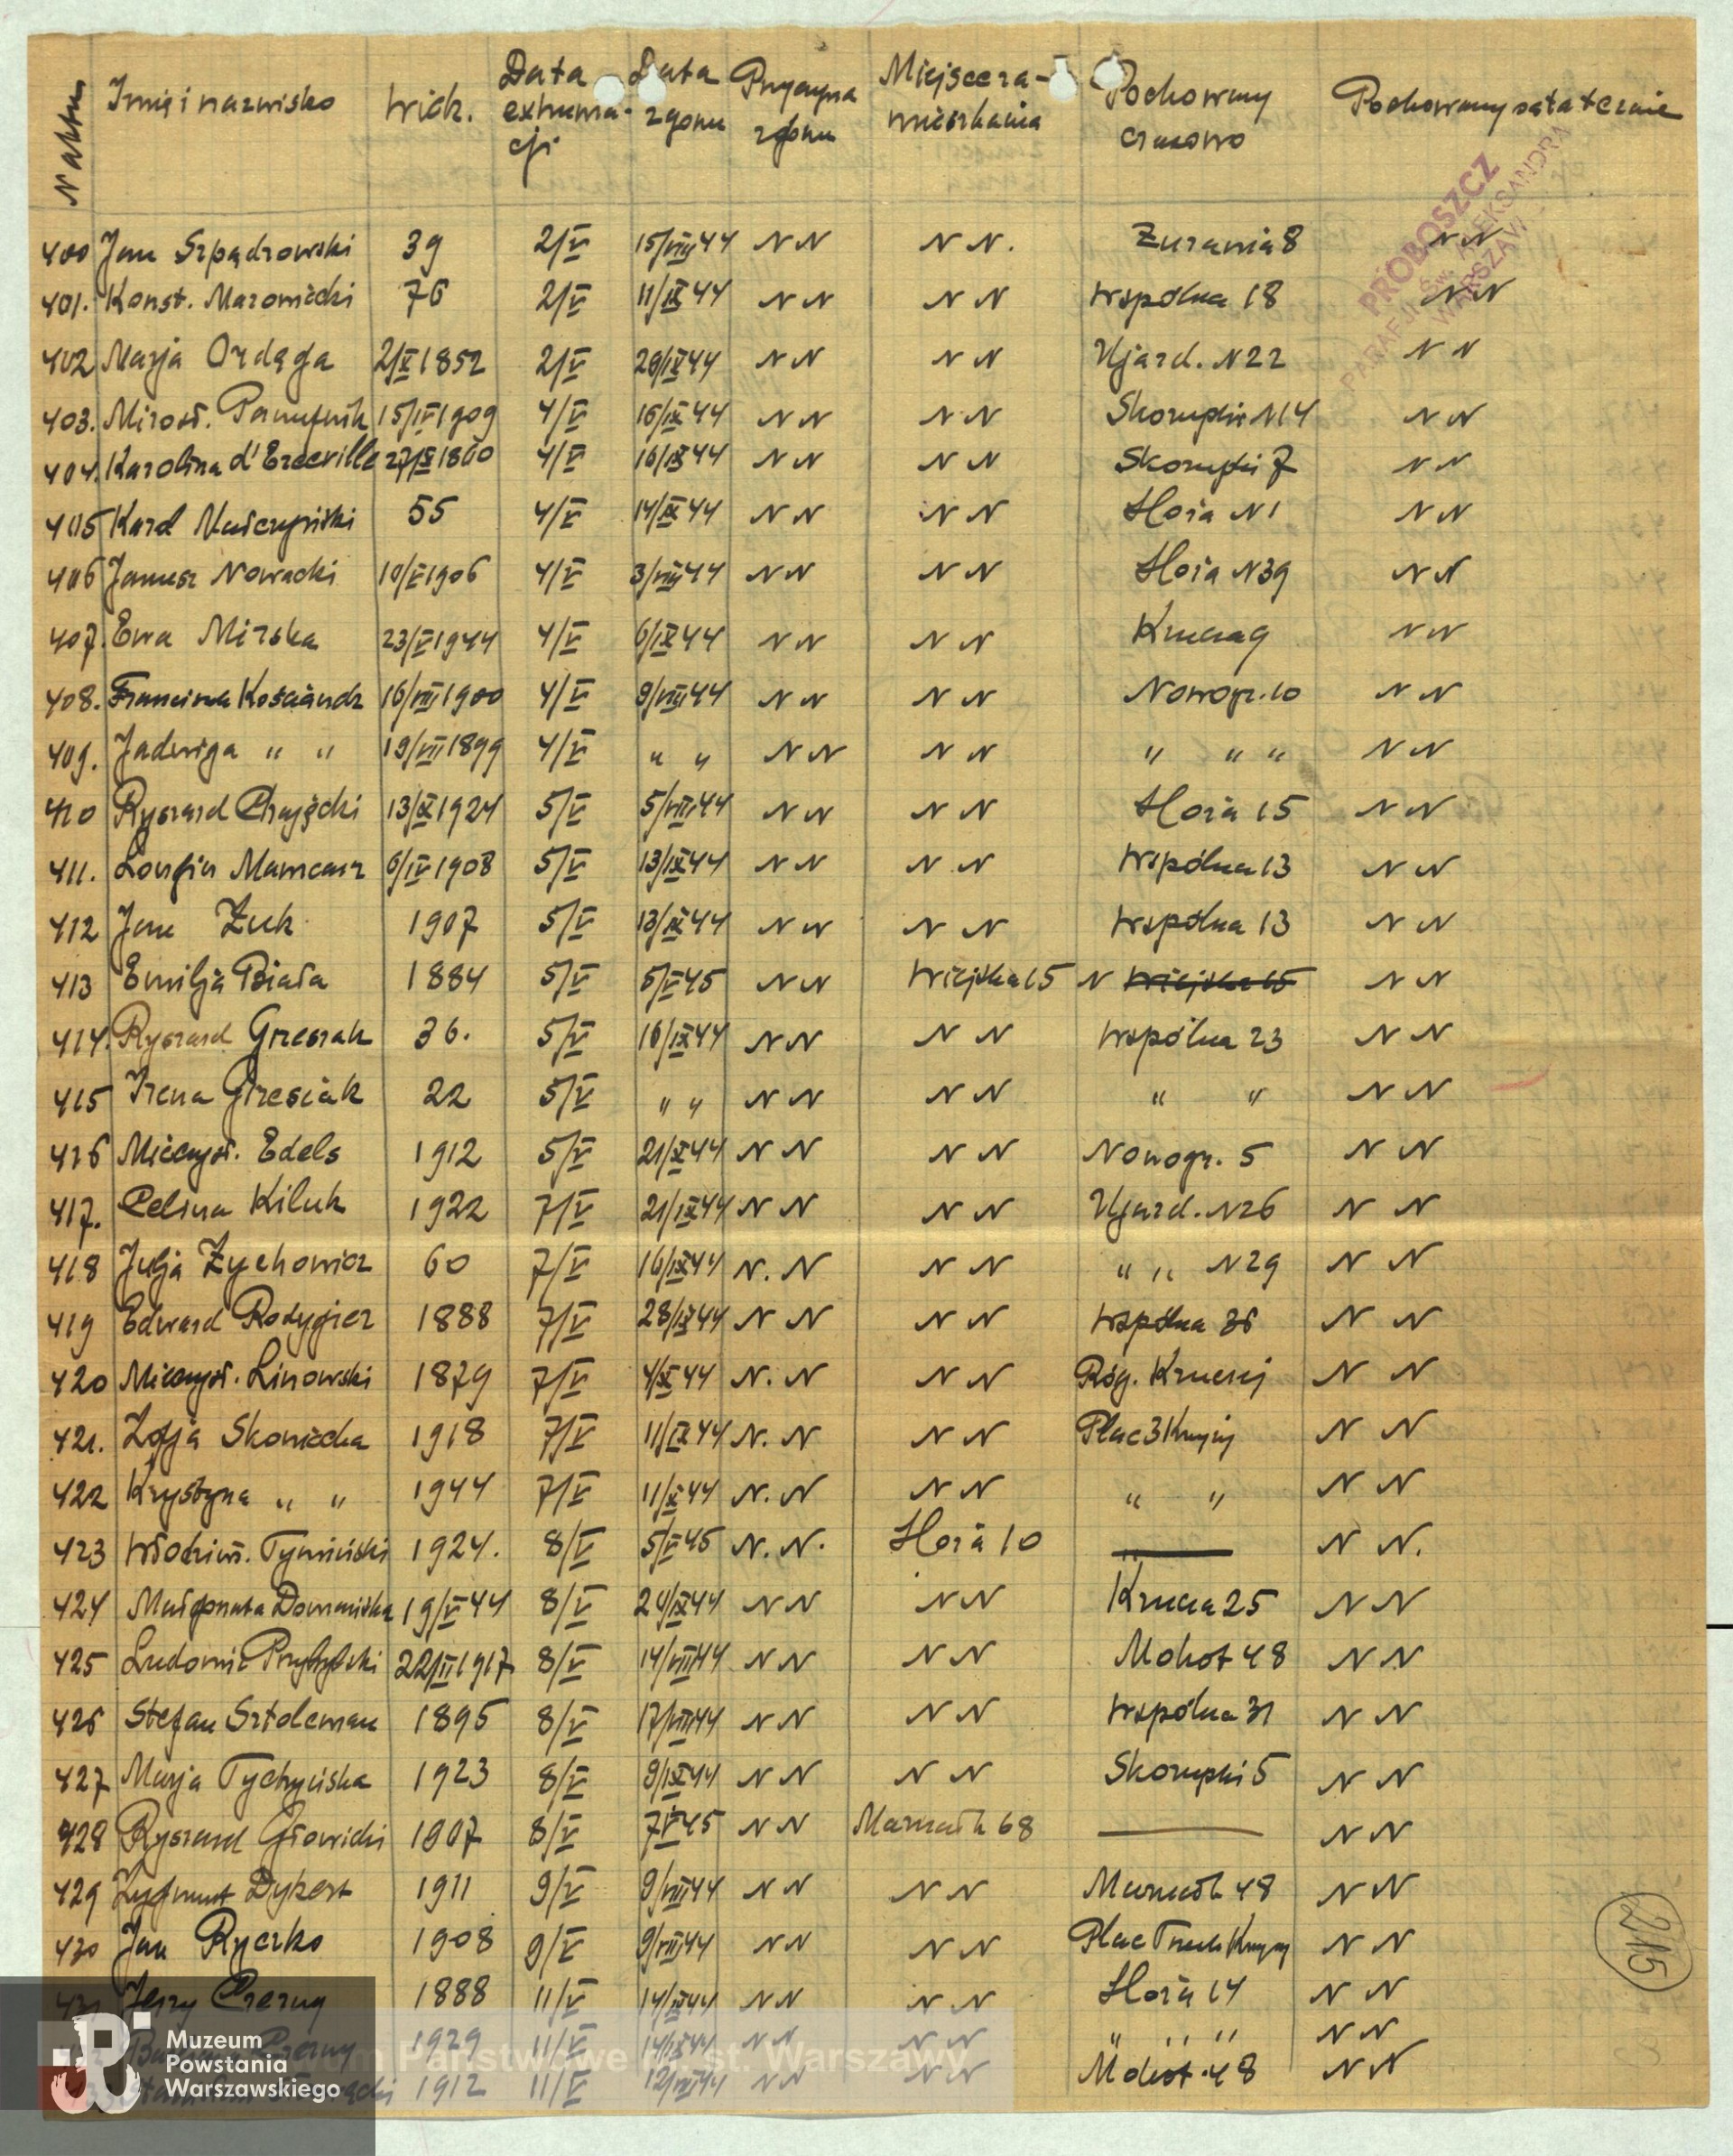 N aktu Imię i nazwisko wiek. Data exhuma- cji Data zgonu Przyczyna zgonu Miejsce za- mieszkania Pochowany czasowo Pochowany ostatecznie
PROBOSZCZ
PARAFJI Św. ALEKSANDRA
WARSZAW
400 Jan Szpądrowski 39 2/V 15/VIII 44 N N N N. Żurawia 8 N N
401. Konst. Mazowiecki 76 2/V 11/IX 44 N N N N Wspólna 18 N N
402 Marja Ordęga 2/X 1852 2/V 28/IX 44 N N N N Ujazd. N 22 N N
403. Mirosł. 15/IV 1909 4/V 16/IX 44 N N N N Skorupki N 14 N N
404. Karolina d'Erceville 27/X 1860 4/V 16/IX 44 N N N N Skorupki 7 N N
405 Karol 55 4/V 14/IX 44 N N N N Hoża N 1 N N
406 Janusz Nowacki 10/V 1906 4/V 3/VIII 44 N N N N Hoża N 39 N N
407. Ewa Mirska 23/V 1944 4/V 6/IX 44 N N N N Krucza 9 N N
408. 16/VIII 1900 4/V 9/VIII 44 N N N N Nowogr. 10 N N
409. Jadwiga " " 19/VII 1899 4/V " " N N N N " " " N N
410 Ryszard 13/IX 1924 5/V 5/VIII 44 N N N N Hoża 15 N N
411. Longin Mamcarz 6/IV 1908 5/V 13/IX 44 N N N N Wspólna 13 N N
412 Jan Żuk 1907 5/V 13/IX 44 N N N N Wspólna 13 N N
413 Emilja Biała 1884 5/V 5/V 45 N N Wiejska 15 N Wiejska 15 N N
414. Ryszard Grzesiak 36. 5/V 16/IX 44 N N N N Wspólna 23 N N
415 Irena Grzesiak 22 5/V " " N N N N " " N N
416 Mieczysł. Edels 1912 5/V 21/X 44 N N N N Nowogr. 5 N N
417. Celina Kiluk 1922 7/V 21/IX 44 N N N N Ujazd. N 26 N N
418 Julja Żychowicz 60 7/V 16/IX 44 N. N N N " " N 29 N N
419 Edward Rodygier 1888 7/V 28/IX 44 N N N N Wspólna 36 N N
420 Mieczysł. Linowski 1879 7/V 4/X 44 N. N N N Róg. Kruczej N N
421. Zofja Skoniecka 1918 7/V 11/IX 44 N. N N N Plac 3 Krzyży N N
422 Krystyna " " 1944 7/V 11/X 44 N. N N N " " N N
423 Włodzim. Tymiński 1924. 8/V 5/V 45 N. N. Hoża 10 — N N.
424 Małgorzata Domańska 19/V 44 8/V 24/IX 44 N N N N Krucza 25 N N
425 Ludomił Przybylski 22/II 1917 8/V 14/VIII 44 N N N N Mokot 48 N N
426 Stefan Sztolcman 1895 8/V 17/VIII 44 N N N N Wspólna 31 N N
427 Marja 1923 8/V 9/IX 44 N N N N Skorupki 5 N N
428 Ryszard Głowicki 1907 8/V 7/V 45 N N Marszałk 68 — N N
429 Zygmunt Dykert 1911 9/V 9/VIII 44 N N N N Marszałk 48 N N
430 Jan Ryczko 1908 9/V 9/VIII 44 N N N N Plac Trzech Krzyży N N
431 Jerzy Czerny 1888 11/V 14/IX 44 N N N N Hoża 14 N N
Czerny 1929 11/V 14/IX 44 N N N N " " " N N
1912 11/V 12/VIII 44 N N N N Mokot. 48 N N
215
Muzeum
Powstania
Warszawskiego
m Państwowe Warszawy